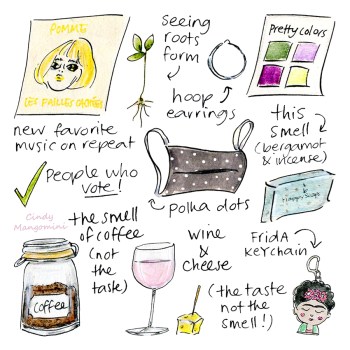 POMME
LES FAILLES CACHÉES
seeing
roots
form
Pretty colors
hoop
earrings
new favorite
music on repeat
this
smell
(bergamot
& incense)
People who
vote!
polka dots
Happy Soaps
Cindy
Mangomini
the smell
of coffee
(not
the
taste)
wine
&
cheese
Frida
keychain
Coffee
(the taste
not the
smell!)